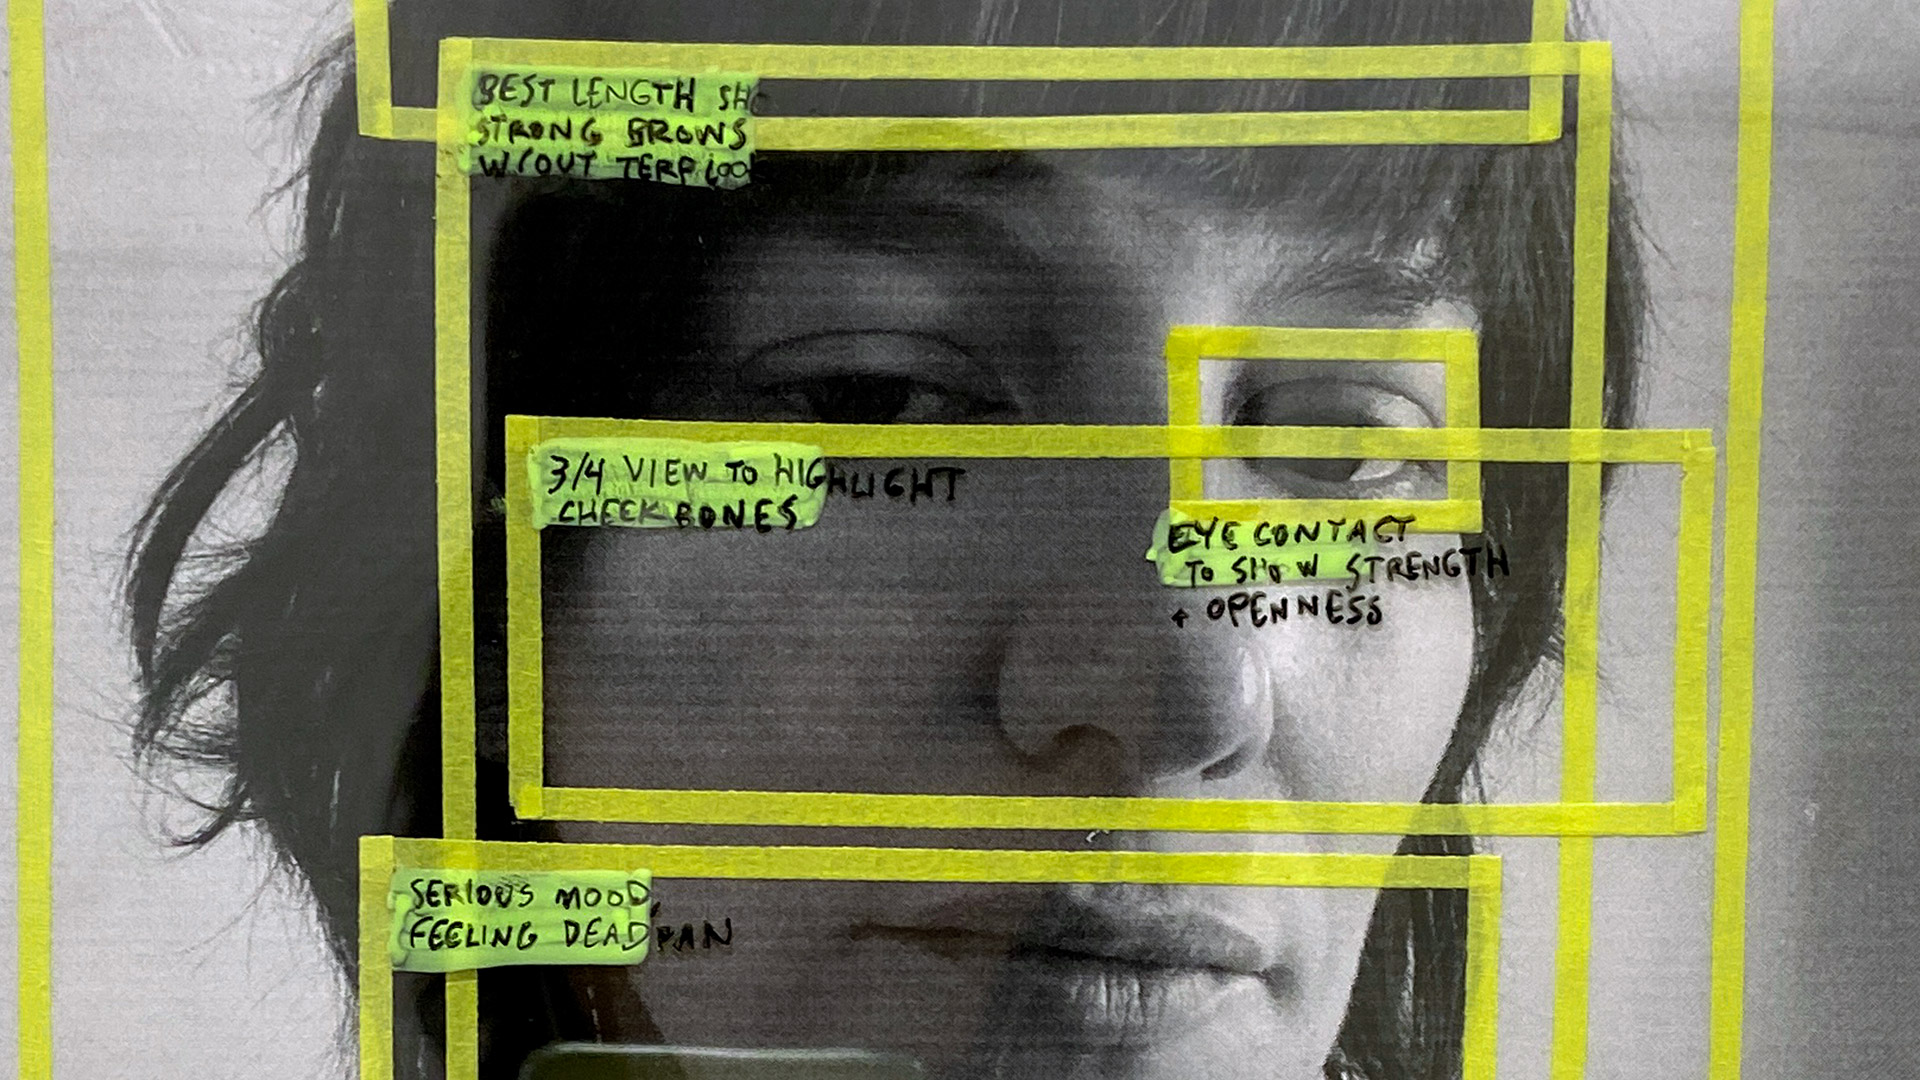 BEST LENGTH
STRONG BROWS
W/OUT TERF LOOK
3/4 VIEW TO HIGHLIGHT
CHEEK BONES
EYE CONTACT
TO SHOW STRENGTH
+ OPENNESS
SERIOUS MOOD,
FEELING DEADPAN